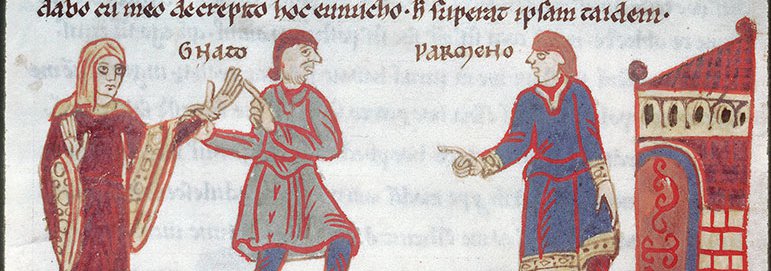 dabo cu meo decrepito hoc eunucho. h superat ipsam taidem.
GNATO PARMENO